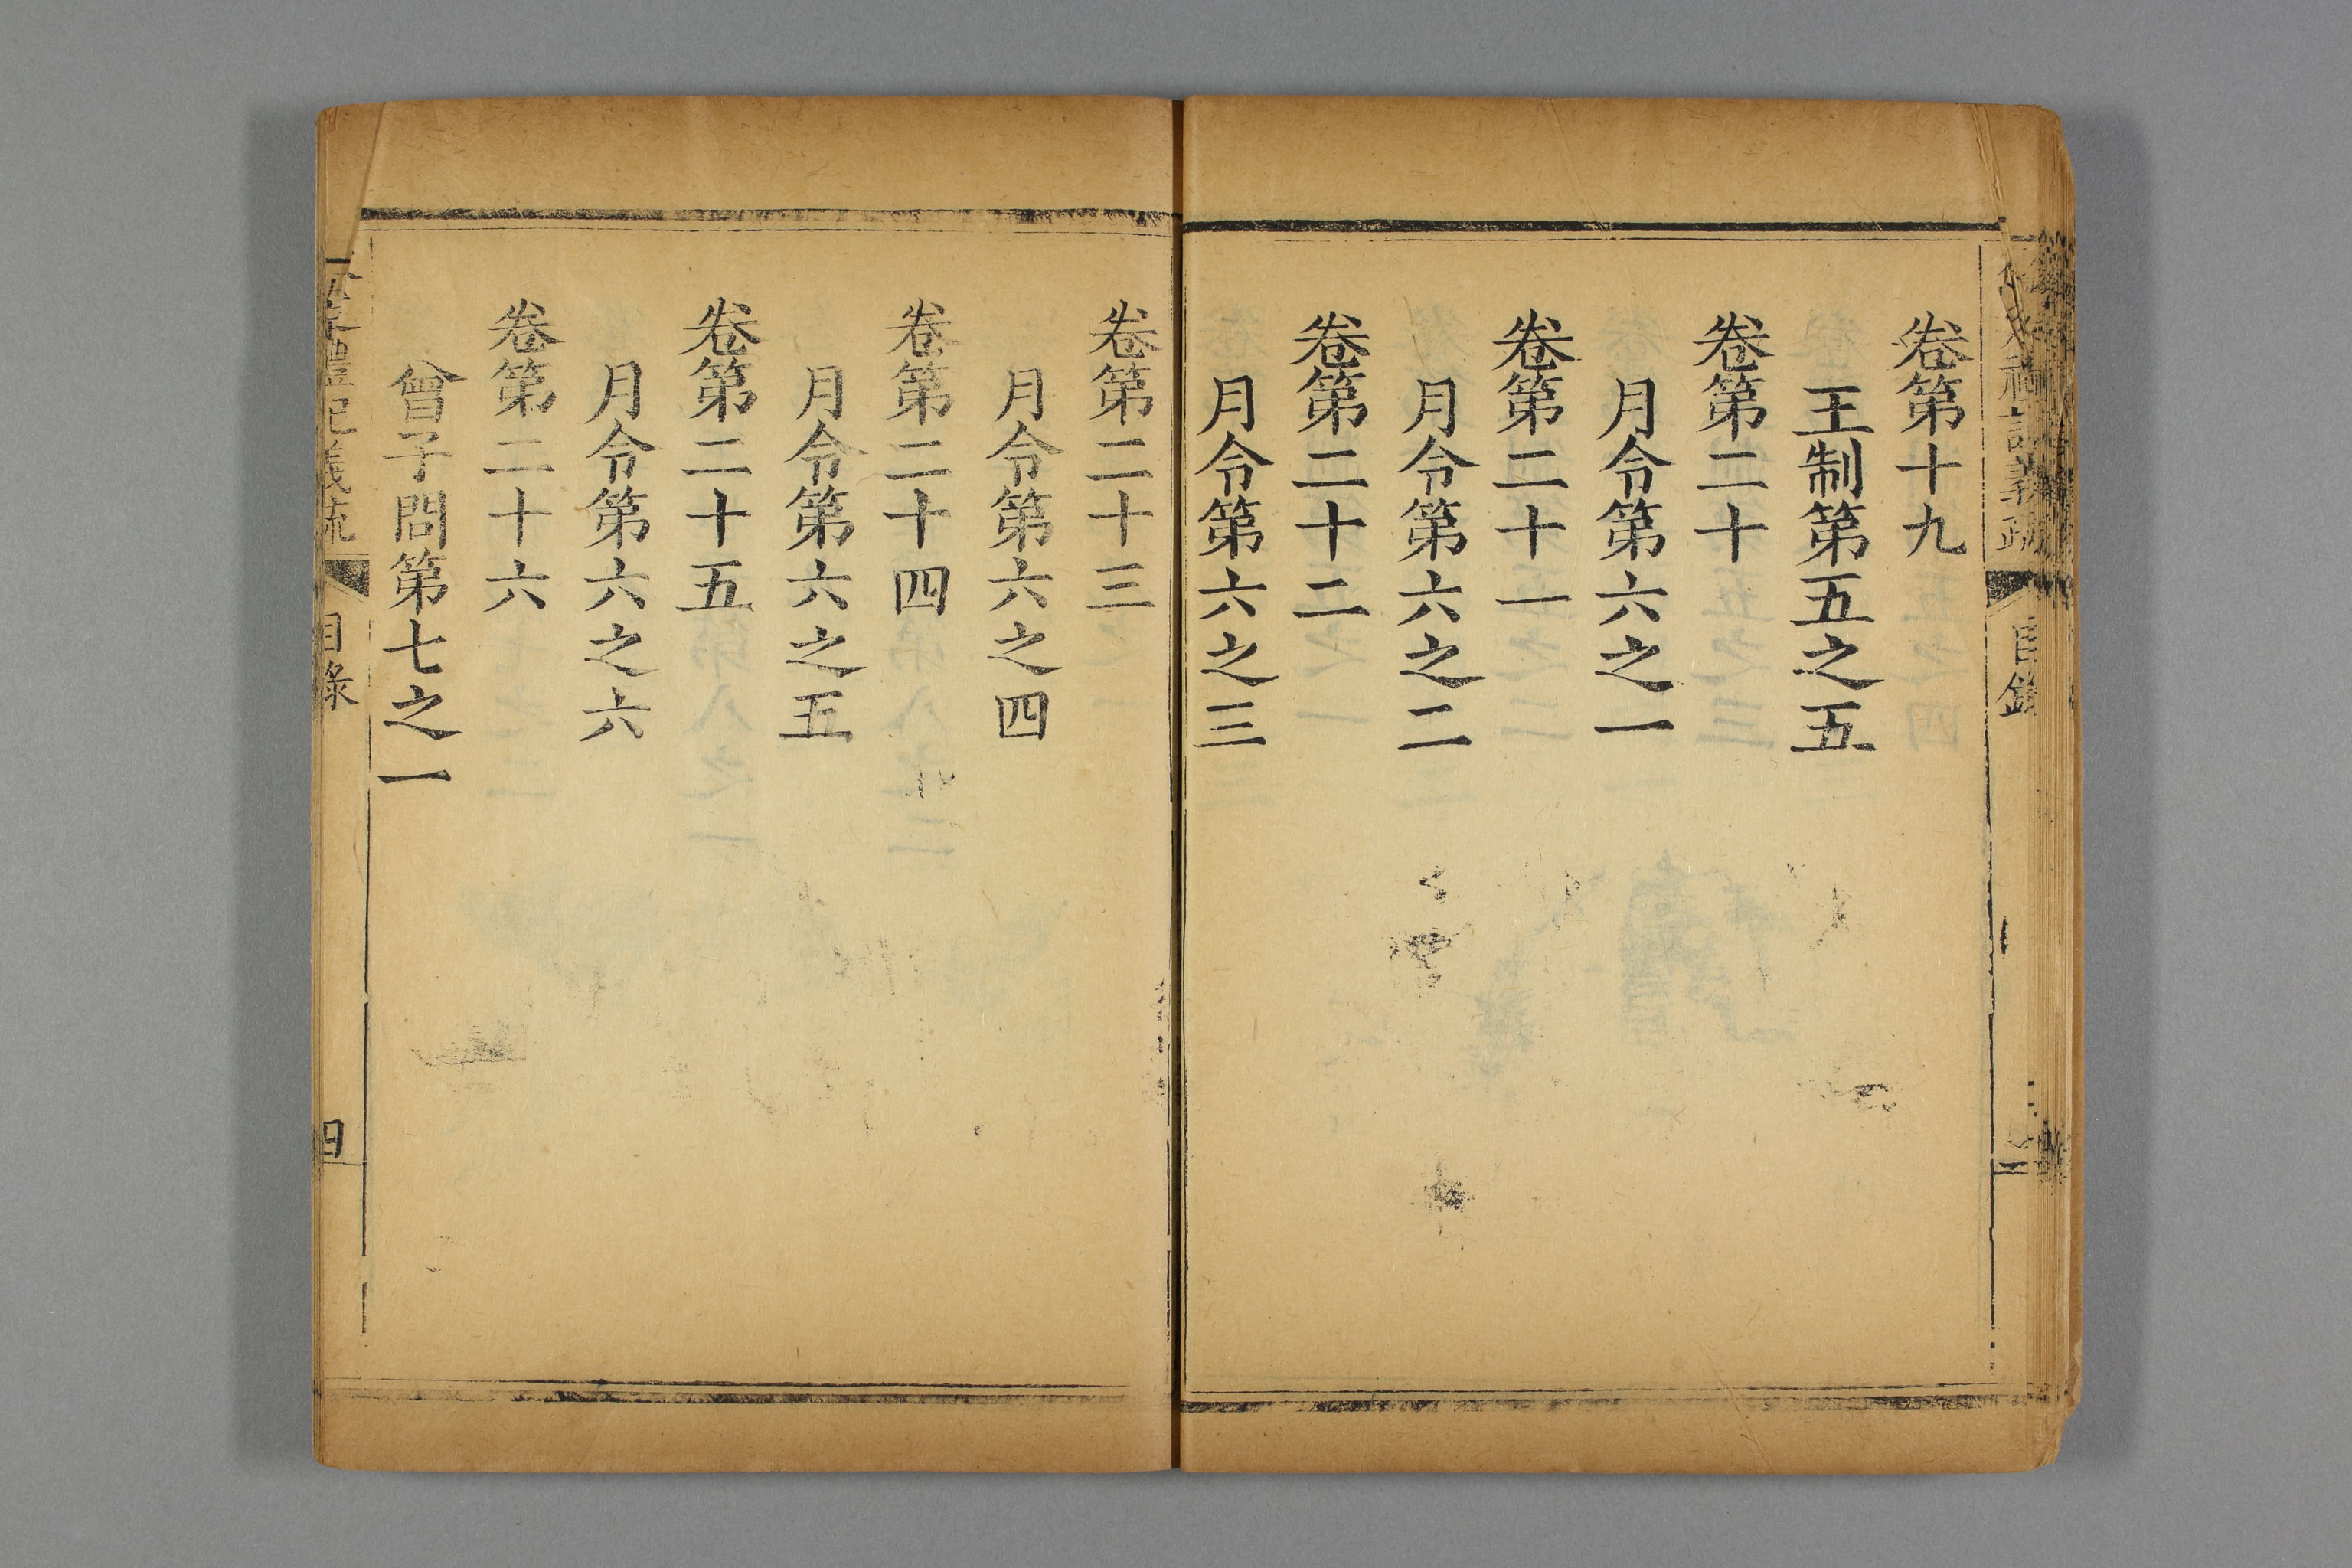 卷第十九
王制第五之五
卷第二十
月令第六之一
卷第二十一
月令第六之二
卷第二十二
月令第六之三
卷第二十三
月令第六之四
卷第二十四
月令第六之五
卷第二十五
月令第六之六
卷第二十六
曾子問第七之一
禮記義疏
目錄
四